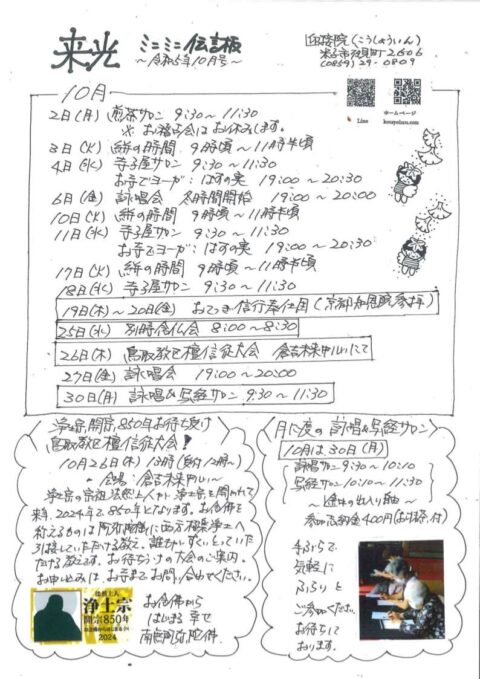 来光 ミニミニ伝言板
～令和5年10月号～
迎接院(こうしょういん)
米子市夜見町2606
(0859)29-0809
Line
ホームページ
10月
2日(月) 煎茶サロン 9:30～11:30
※お福子会はお休みします。
3日(火) 絣の時間 9時頃～11時半頃
4日(水) 寺子屋サロン 9:30～11:30
お寺でヨーガ:はすの実 19:00～20:30
6日(金) 詠唱会 冬時間開始 19:00～20:00
10日(火) 絣の時間 9時頃～11時半頃
11日(水) 寺子屋サロン 9:30～11:30
お寺でヨーガ:はすの実 19:00～20:30
17日(火) 絣の時間 9時頃～11時半頃
18日(水) 寺子屋サロン 9:30～11:30
19日(木)～20日(金) おてつぎ信行奉仕団(京都知恩院参拝)
25日(水) 別時念仏会 8:00～8:30
26日(木) 鳥取教区檀信徒大会 倉吉未来中心にて
27日(金) 詠唱会 19:00～20:00
30日(月) 詠唱&写経サロン 9:30～11:30
浄土宗開宗850年お待ち受け
鳥取教区檀信徒大会!
10月26日(木)13時(受付12時～)
会場:倉吉未来中心
浄土宗の宗祖法然上人が浄土宗を開かれて
来年2024年で850年となります。お念仏を
称えるものは阿弥陀様に西方極楽浄土へ
引接していただける教え。誰もがすくいとっていた
だける教えです。お待ちうけの大会のご案内。
お申し込みは、お寺までお問い合わせください。
法然上人
浄土宗
開宗850年
2024
お念仏から
はじまる幸せ
南無阿弥陀佛
月に一度の詠唱&写経サロン
10月は、30日(月)
詠唱サロン9:30～10:10
写経サロン10:10～11:30
～途中の出入り自由～
参加志納金400円(お抹茶付)
手ぶらで
気軽に
ふらりと
ご参加ください。
お待ちして
おります。